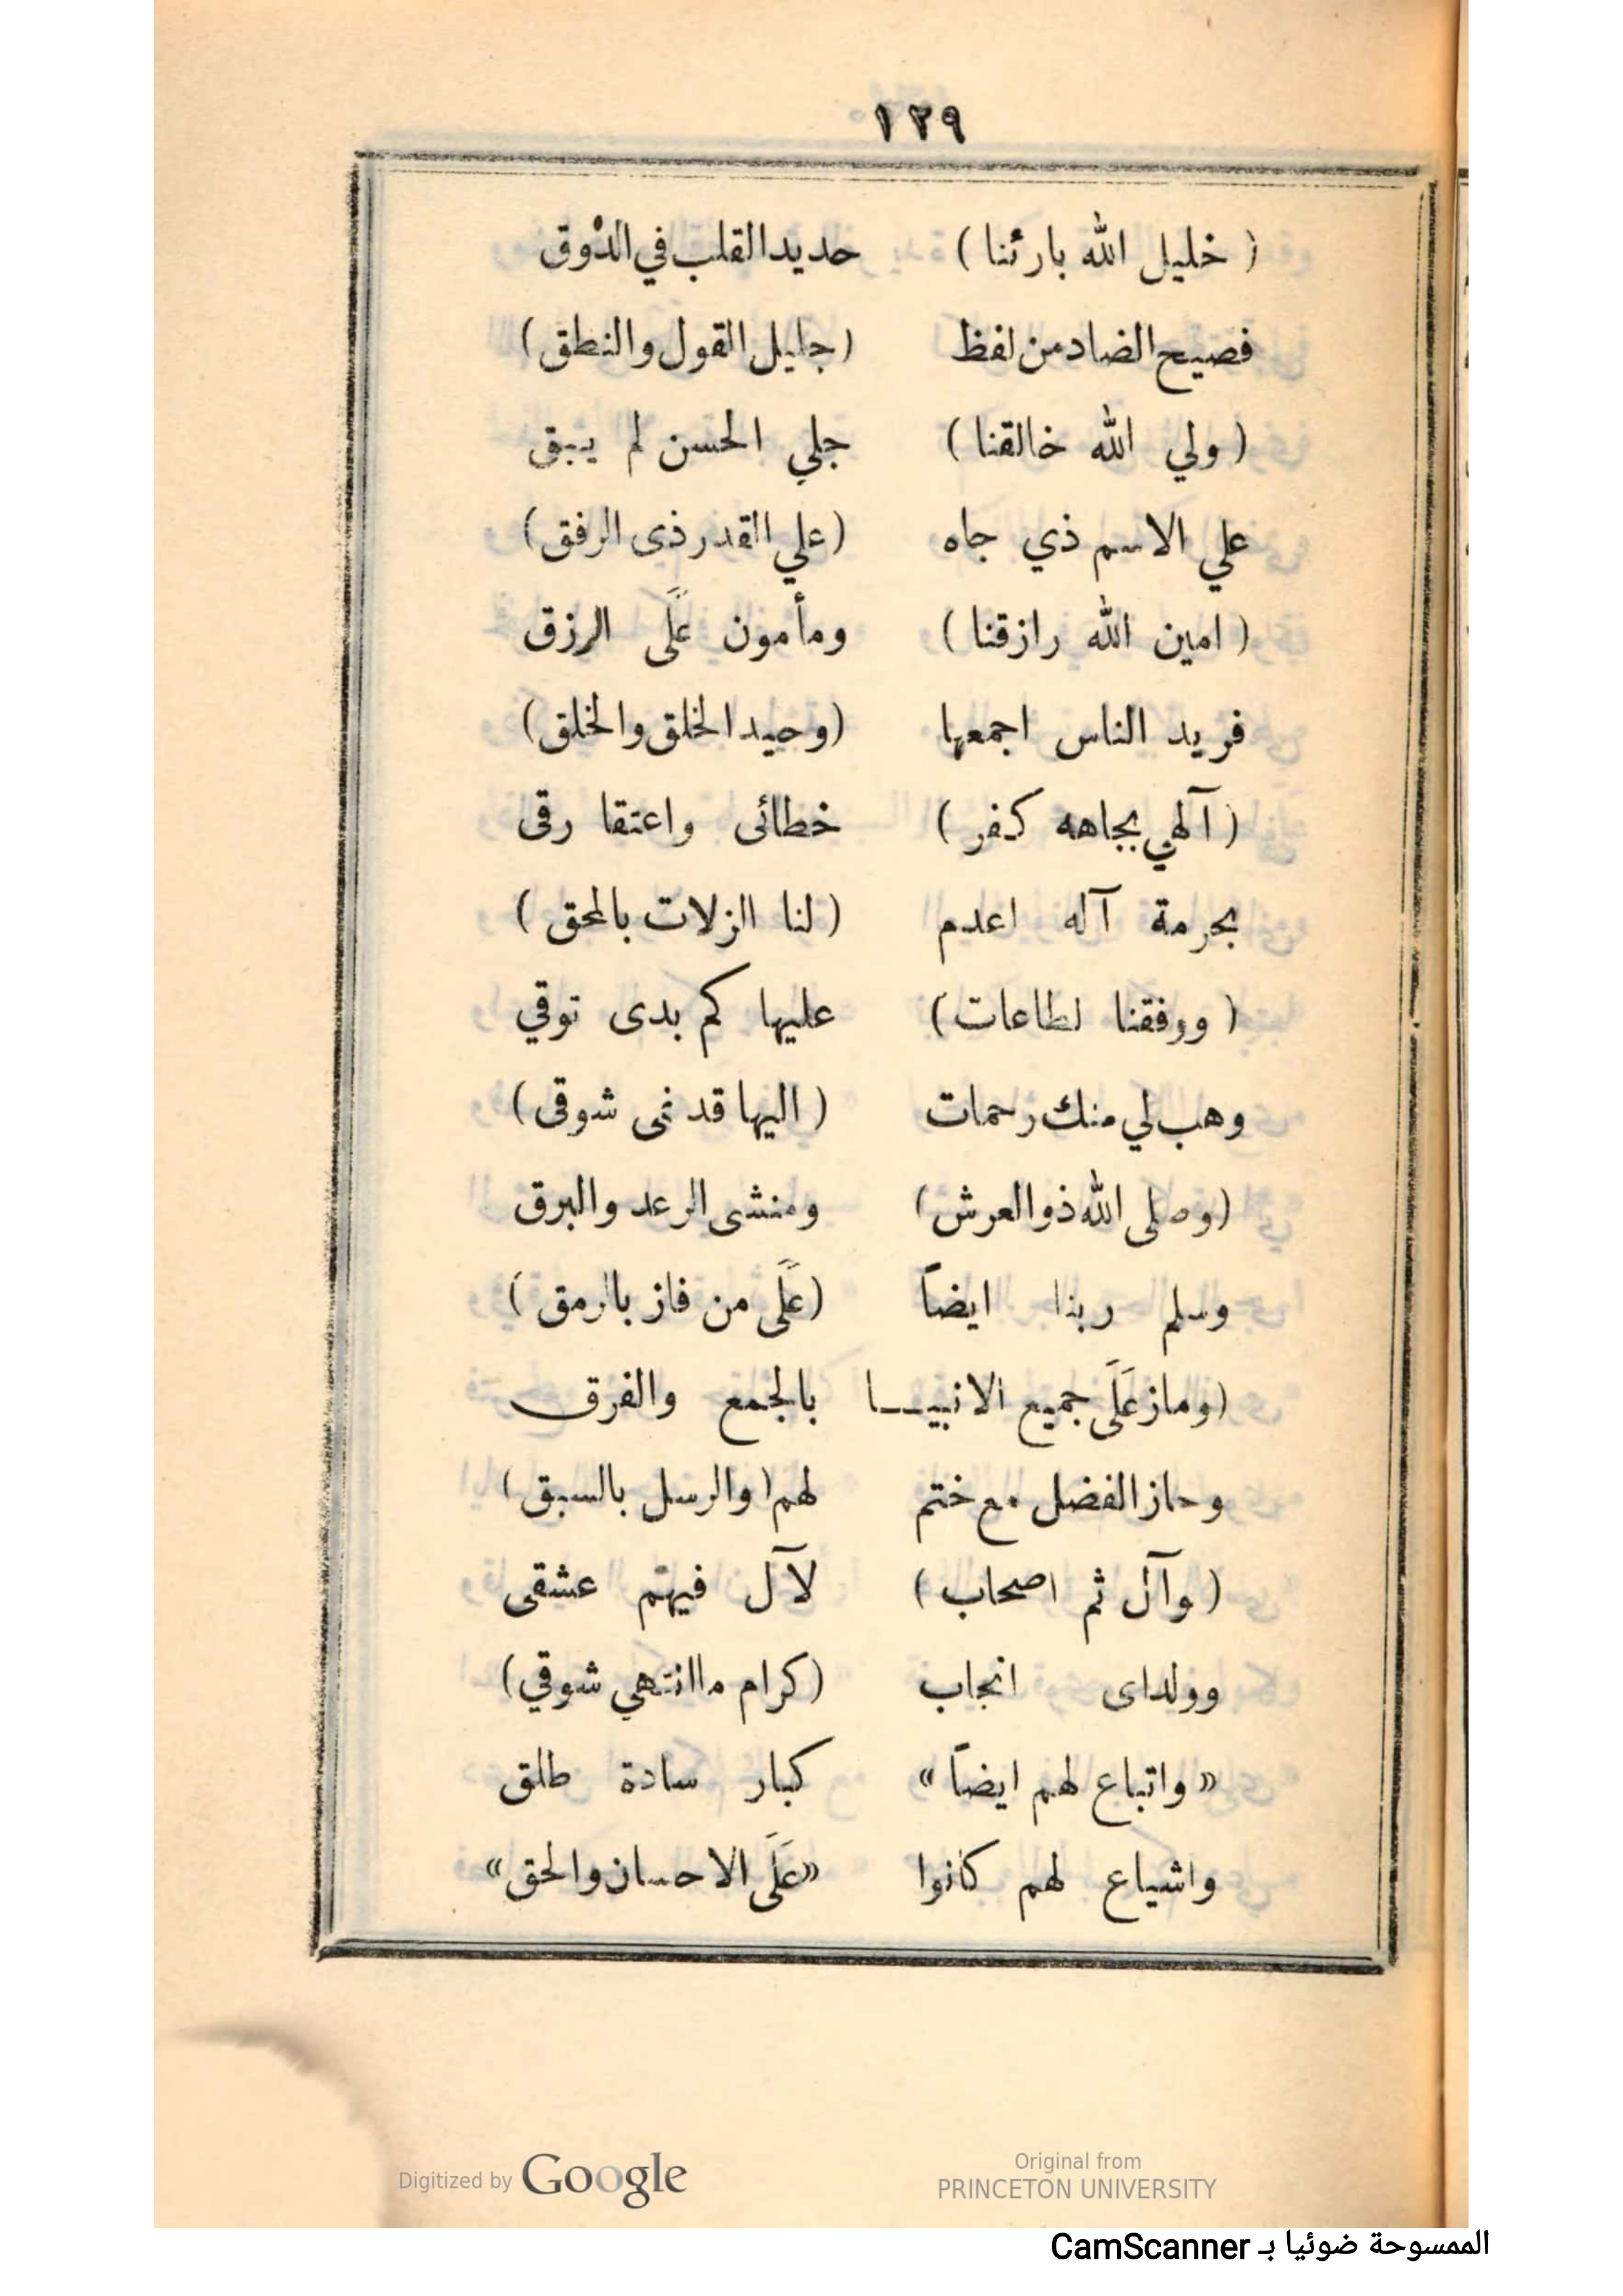 ١٢٩
( خليل الله بارئنا ) حديد القلب في الذوق
فصيح الضاد من لفظ (جليل القول والنطق)
( ولي الله خالقنا ) جلي الحسن لم يبق
علي الاسم ذي جاه (علي القدر ذى الرفق)
( امين الله رازقنا ) ومأمون عَلَى الرزق
فريد الناس اجمعها (وحيد الخلق والخلق)
( آلهي بجاهه كفر ) خطائى واعتقا رقى
بحرمة آله اعدم ( لنا الزلات بالمحق )
( ووفقنا لطاعات ) عليها كم بدى توقي
وهب لي منك رحمات ( اليها قد نمى شوقى )
(وصلى الله ذوالعرش) ومنشى الرعد والبرق
وسلم ربنا ايضاً (عَلَى من فاز بالرمق )
(وماز عَلَى جميع الانبيـــا بالجمع والفرق
وحاز الفضل مع ختم لهم ( والرسل بالسبق )
( وآل ثم اصحاب ) لآل فيهم عشقى
وولداى انجاب (كرام ما انتهي شوقي)
« واتباع لهم ايضاً » كبار سادة طلق
واشياع لهم كانوا «عَلَى الاحسان والحق»
Digitized by Google
Original from
PRINCETON UNIVERSITY
الممسوحة ضوئيا بـ CamScanner